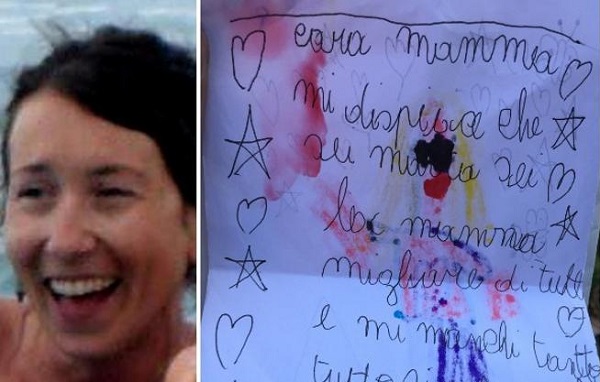 cara mamma
mi dispiace che
sei morta sei
la mamma
migliore di tutti
e mi manchi tanto